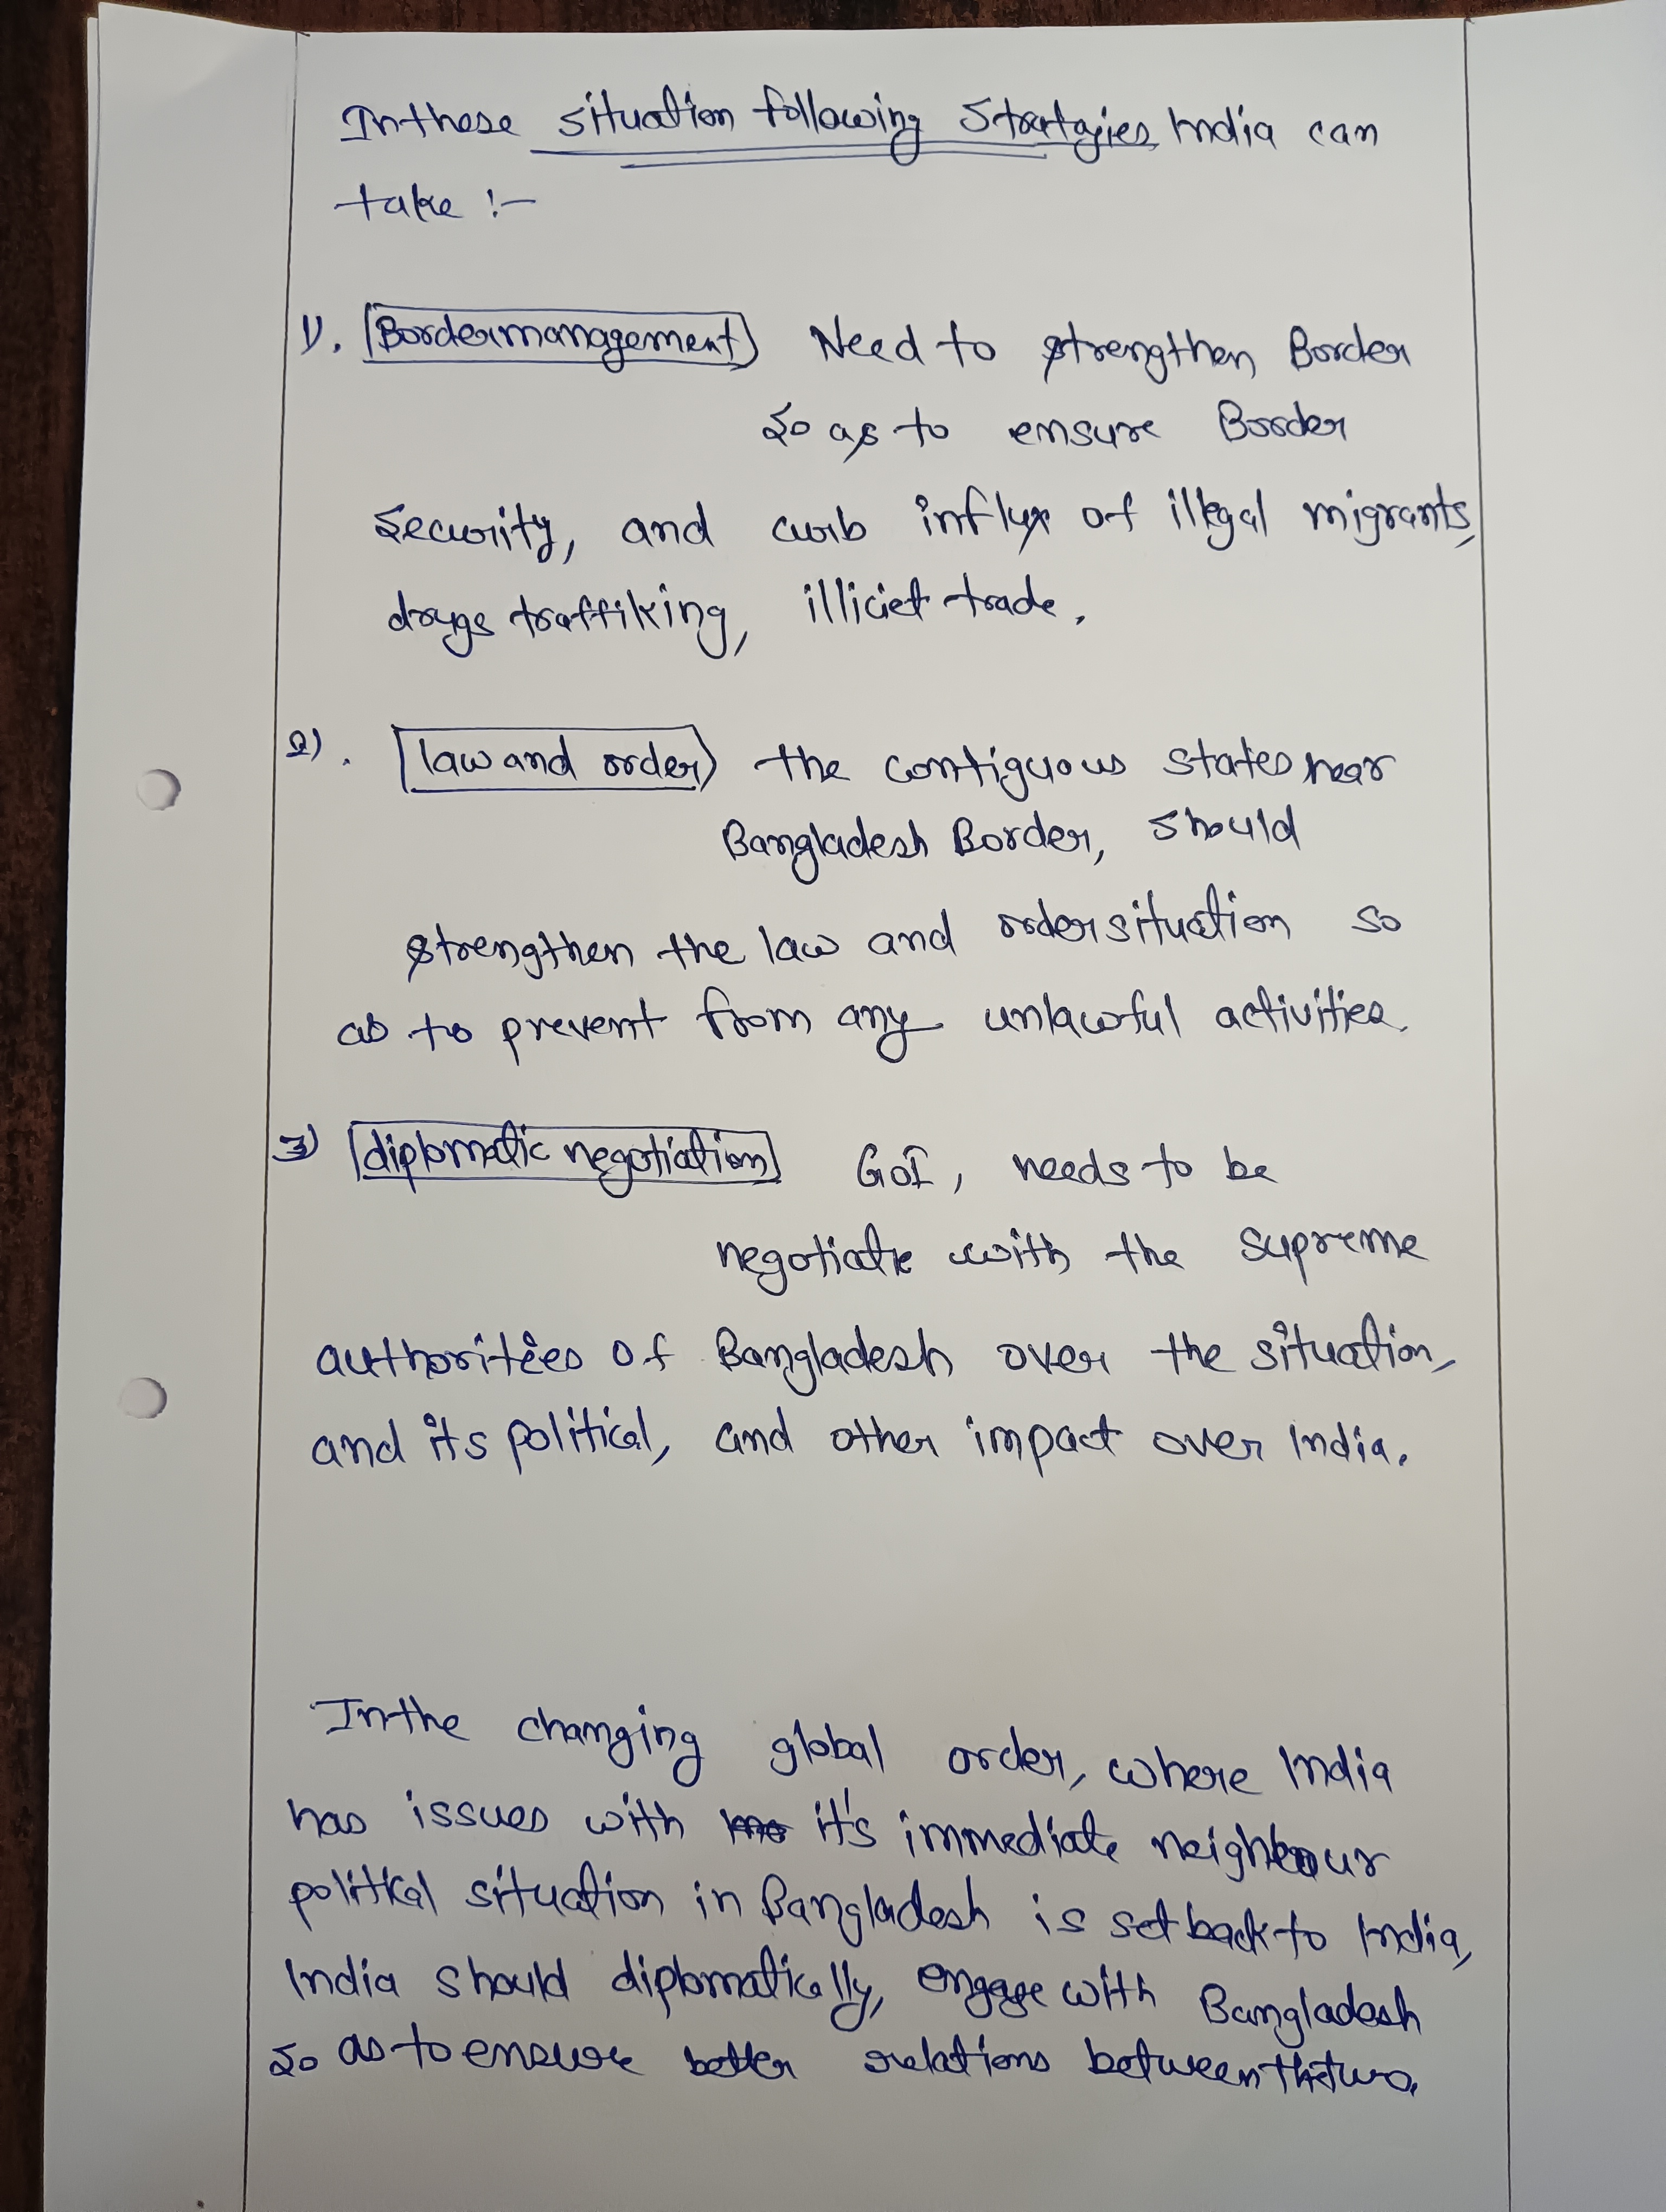 In these situation following Stratagies India can
take :-
1). Border management Need to strengthen Border
so as to ensure Border
security, and curb influx of illegal migrants,
drugs traffiking, illiciet trade.
2). law and order the contiguous states near
Bangladesh Border, should
strengthen the law and order situation so
as to prevent from any unlawful activities.
3) diplomatic negotiation GoI, needs to be
negotiate with the supreme
authorities of Bangladesh over the situation,
and its political, and other impact over India.
In the changing global order, where India
has issues with it's immediate neighbour
political situation in Bangladesh is set back to India,
India should diplomatically, engage with Bangladesh
so as to ensure better relations between the two.